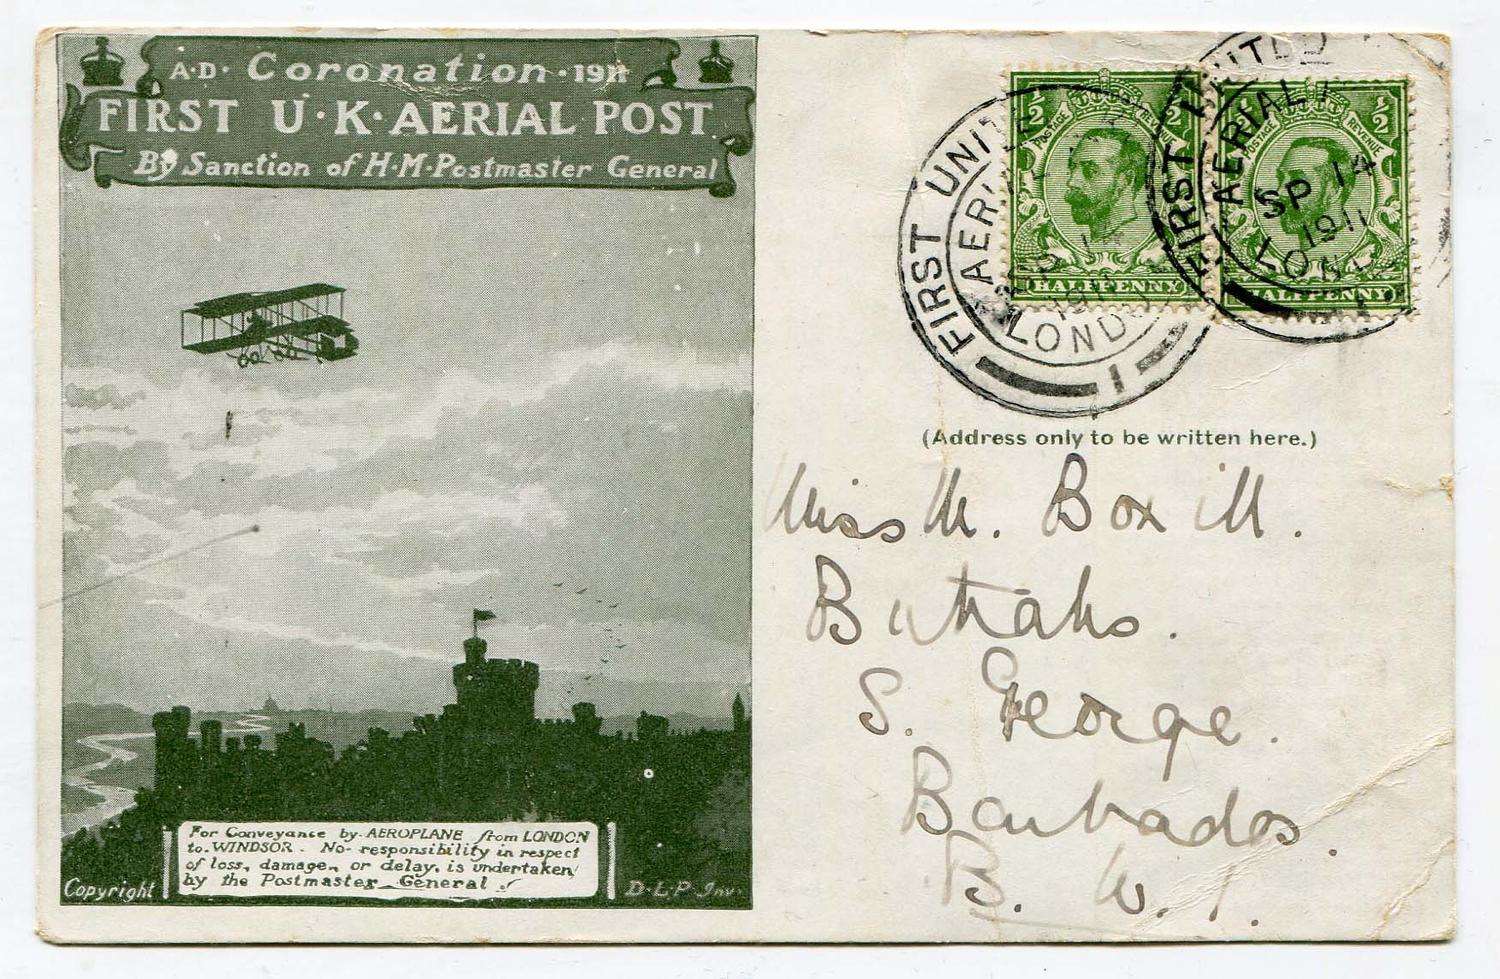 A·D· Coronation · 1911
FIRST U·K·AERIAL POST
By Sanction of H·M·Postmaster General
For Conveyance by AEROPLANE from LONDON
to WINDSOR. No responsibility in respect
of loss, damage, or delay, is undertaken
by the Postmaster General
Copyright
D·L·P·Inv·
½ ½
POSTAGE REVENUE
HALFPENNY
½ ½
POSTAGE REVENUE
HALFPENNY
FIRST UNITE
AERI
1911
LOND
1
FIRST UNITED
AERIAL
SP 14
1911
LOND
(Address only to be written here.)
Miss M. Boxill.
S. George.
Barbados.
B. W. I.